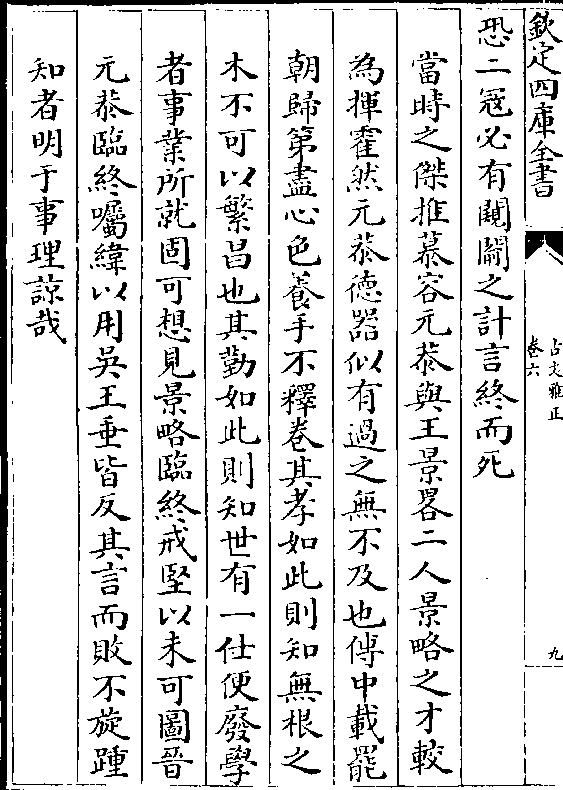 欽定四庫全書
古文雅正
卷六
九
恐二冦必有闚𨷲之計言終而死
當時之傑推慕容元恭與王景畧二人景略之才較
為揮霍然元恭徳器似有過之無不及也傳中載罷
朝歸第盡心色養手不釋卷其孝如此則知無根之
木不可以繁昌也其勤如此則知世有一仕便廢學
者事業所就固可想見景略臨終戒堅以未可圖晉
元恭臨終囑緯以用吳王垂皆反其言而敗不旋踵
知者明于事理諒哉